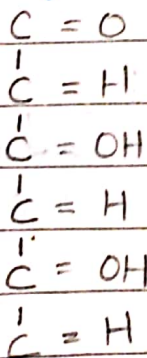 C = O
C = H
C = OH
C = H
C = OH
C = H